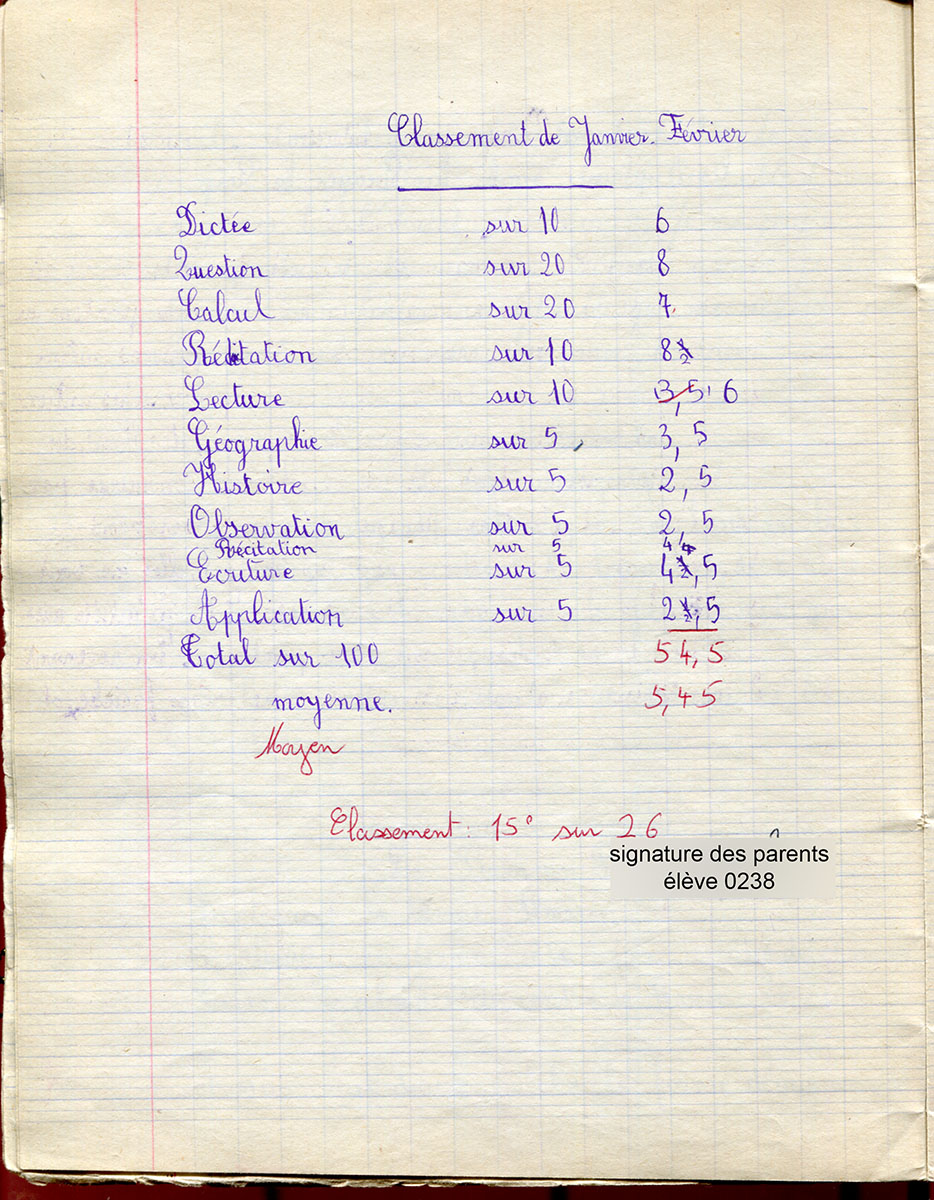 Classement de Janvier. Février
Dictée sur 10 6
Question sur 20 8
Calcul sur 20 7
Rédaction sur 10 8 1/2
Lecture sur 10 3,5 6
Géographie sur 5 3,5
Histoire sur 5 2,5
Observation sur 5 2,5
Récitation sur 5 4
Ecriture sur 5 4,5
Application sur 5 2,5
Total sur 100 54,5
moyenne. 5,45
Moyen
Classement: 15e sur 26
signature des parents
élève 0238